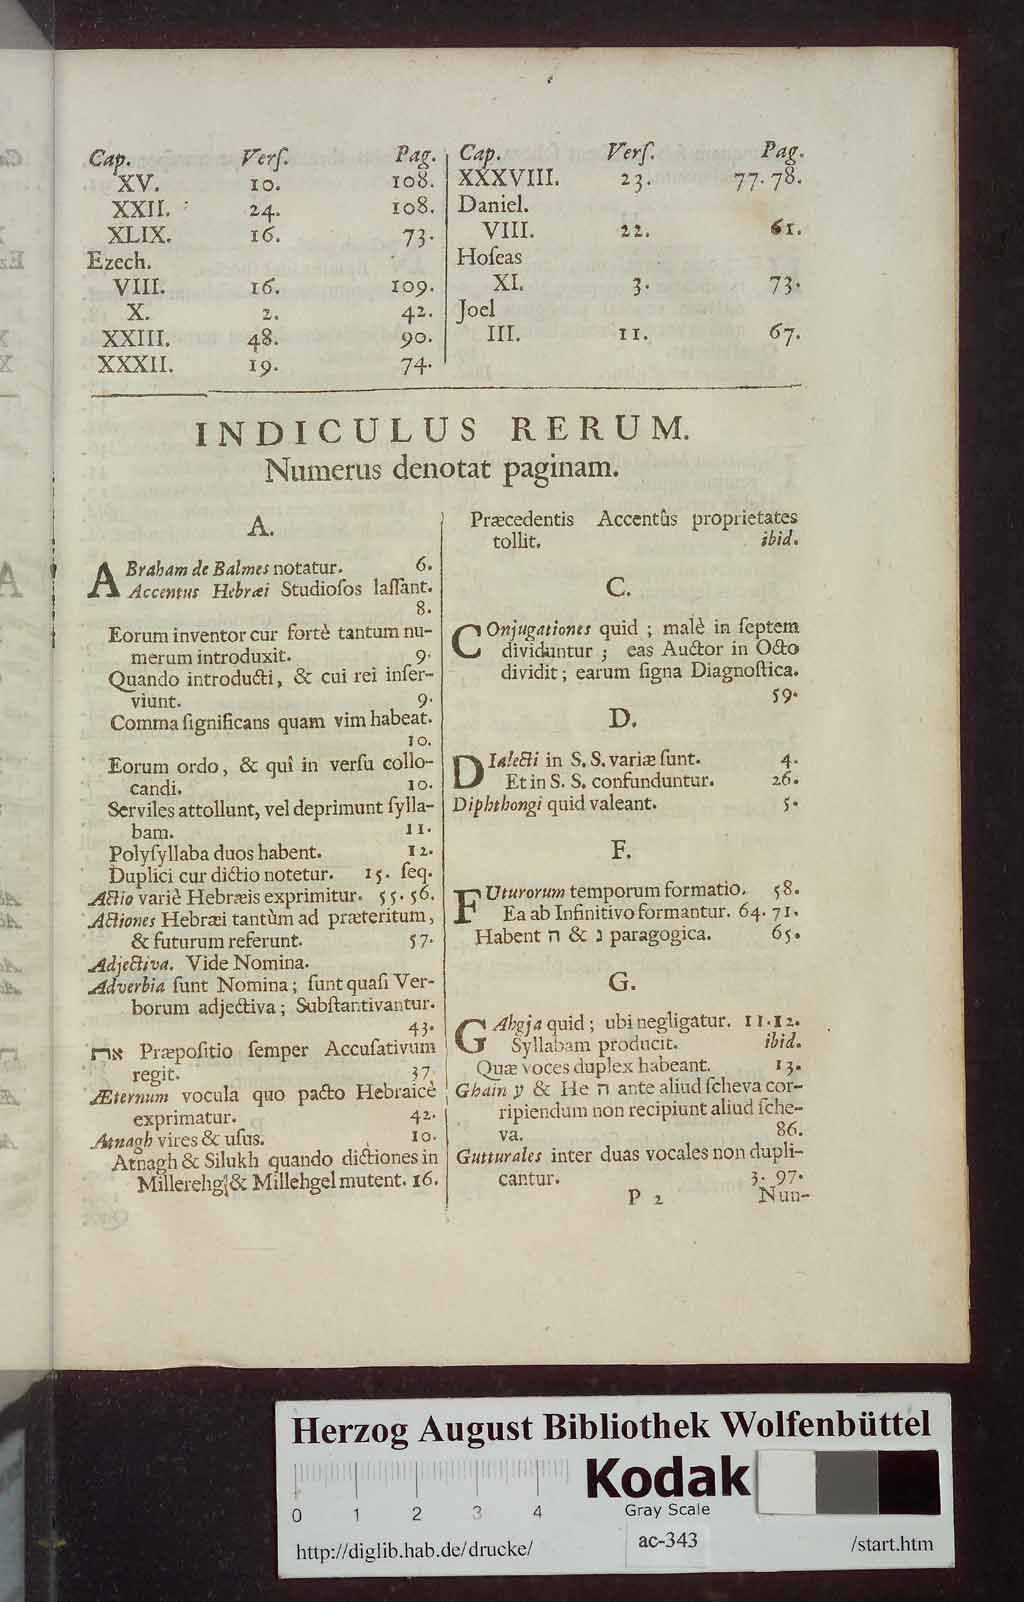 Cap. Verſ. Pag.
XV. 10. 108.
XXII. 24. 108.
XLIX. 16. 73.
Ezech.
VIII. 16. 109.
X. 2. 42.
XXIII. 48. 90.
XXXII. 19. 74.
Cap. Verſ. Pag.
XXXVIII. 23. 77. 78.
Daniel.
VIII. 22. 61.
Hoſeas
XI. 3. 73.
Joel
III. 11. 67.
INDICULUS RERUM.
Numerus denotat paginam.
A.
ABraham de Balmes notatur. 6.
Accentus Hebræi Studioſos laſſant.
8.
Eorum inventor cur fortè tantum nu-
merum introduxit. 9.
Quando introducti, & cui rei inſer-
viunt. 9.
Comma ſignificans quam vim habeat.
10.
Eorum ordo, & quî in verſu collo-
candi. 10.
Serviles attollunt, vel deprimunt ſylla-
bam. 11.
Polyſyllaba duos habent. 12.
Duplici cur dictio notetur. 15. ſeq.
Actio variè Hebræis exprimitur. 55. 56.
Actiones Hebræi tantùm ad præteritum,
& futurum referunt. 57.
Adjectiva. Vide Nomina.
Adverbia ſunt Nomina; ſunt quaſi Ver-
borum adjectiva; Subſtantivantur.
43.
את Præpoſitio ſemper Accuſativum
regit. 37.
Æternum vocula quo pacto Hebraicè
exprimatur. 42.
Atnagh vires & uſus. 10.
Atnagh & Silukh quando dictiones in
Millerehg & Millehgel mutent. 16.
Præcedentis Accentûs proprietates
tollit. ibid.
C.
COnjugationes quid ; malè in ſeptem
dividuntur ; eas Auctor in Octo
dividit ; earum ſigna Diagnoſtica.
59.
D.
DIalecti in S. S. variæ ſunt. 4.
Et in S. S. confunduntur. 26.
Diphthongi quid valeant. 5.
F.
FUturorum temporum formatio. 58.
Ea ab Infinitivo formantur. 64. 71.
Habent ה & נ paragogica. 65.
G.
GAhgja quid ; ubi negligatur. 11.12.
Syllabam producit. ibid.
Quæ voces duplex habeant. 13.
Ghain ע & He ה ante aliud ſcheva cor-
ripiendum non recipiunt aliud ſche-
va. 86.
Gutturales inter duas vocales non dupli-
cantur. 3. 97.
P 2 Nun-
Herzog August Bibliothek Wolfenbüttel
0 1 2 3 4
Kodak
Gray Scale
http://diglib.hab.de/drucke/ ac-343 /start.htm